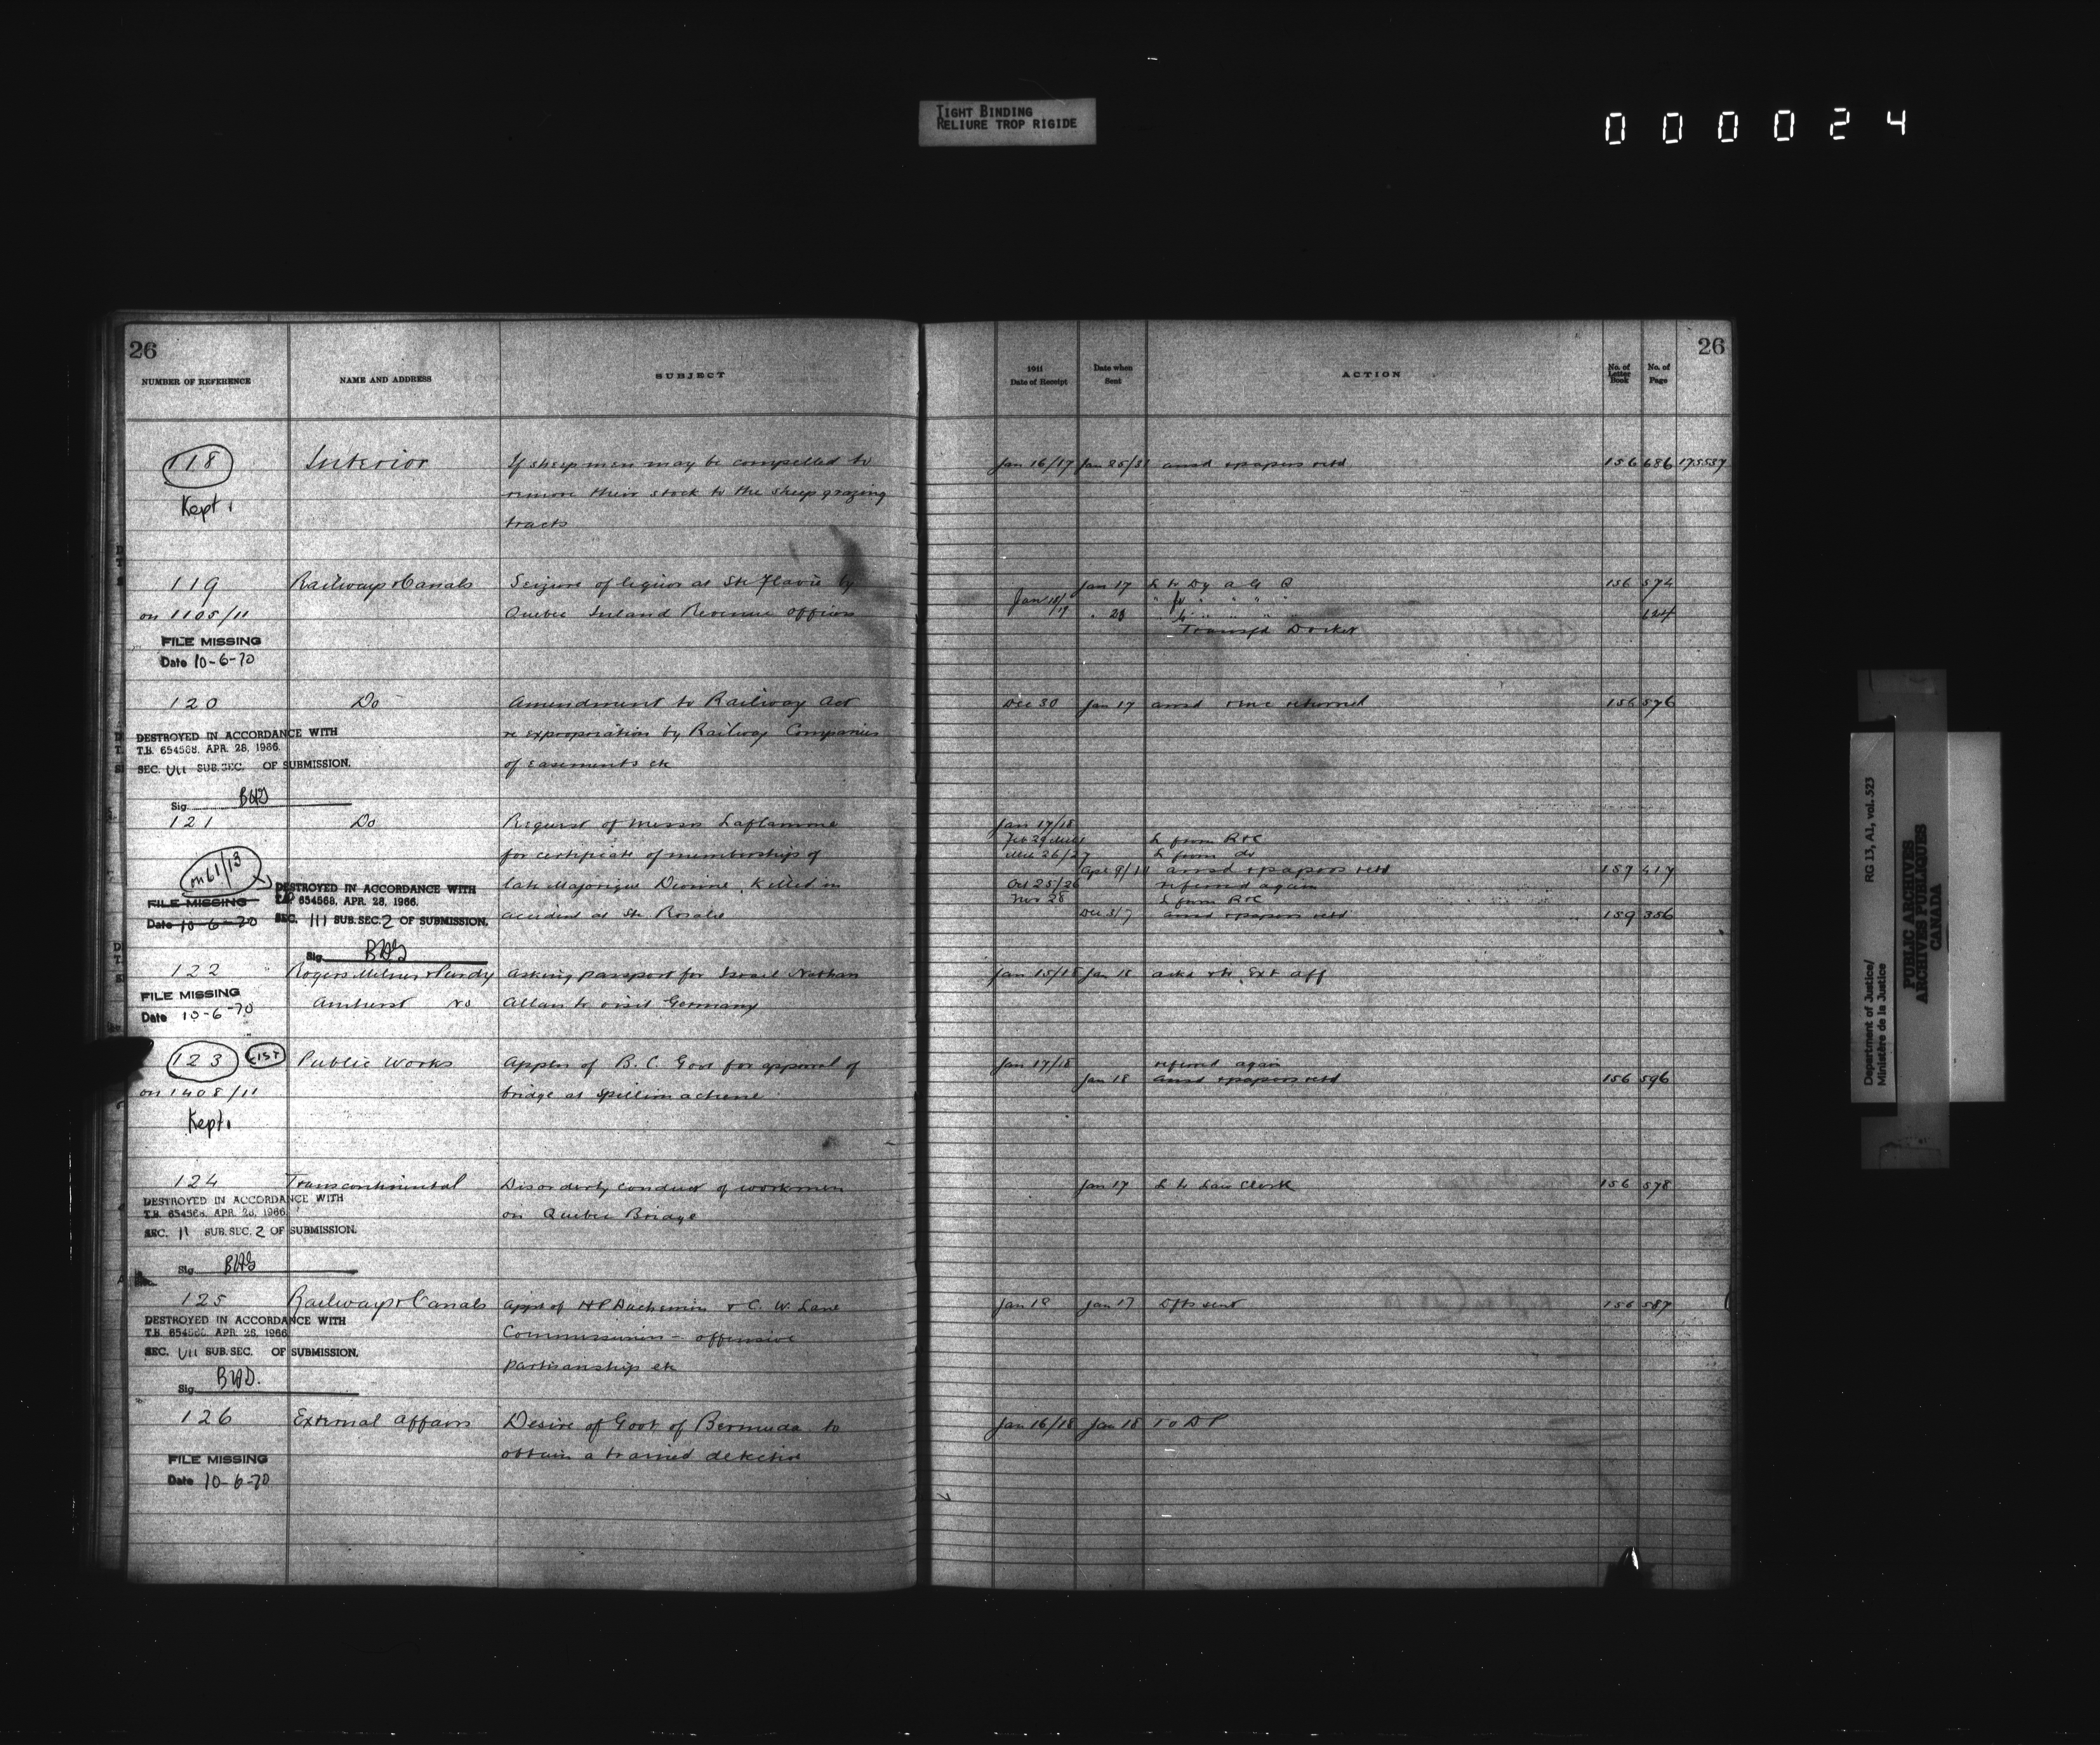 TIGHT BINDING
RELIURE TROP RIGIDE
000024
26
NUMBER OF REFERENCE NAME AND ADDRESS SUBJECT
118 Interior If sheep men may be compelled to
Kept. remove their stock to the sheep grazing
tracts
119 Railways & Canals Seizure of liquor at Ste Flavie by
on 1105/11 Quebec Inland Revenue officers
FILE MISSING
Date 10-6-70
120 Do Amendment to Railway Act
DESTROYED IN ACCORDANCE WITH re expropriation by Railway Companies
T.B. 654568, APR. 28, 1966.
SEC. VII SUB.SEC. OF SUBMISSION. of easements etc
Sig.
121 Do Request of Messrs Laflamme
for certificate of memberships of
on 61/13
DESTROYED IN ACCORDANCE WITH late Majorique Dionne, killed in
FILE MISSING 654568, APR. 28, 1966.
Date 10-6-70 SEC. III SUB.SEC. 2 OF SUBMISSION. accident at Ste Rosalie
Sig.
122 Rogers Milner & Purdy Asking passport for Israel Nathan
FILE MISSING Amherst NS Allan to visit Germany
Date 10-6-70
123 LIST Public Works Appln of B.C. Govt for approval of
on 1408/11 bridge at Spillimachene
Kept.
124 Transcontinental Disorderly conduct of workmen
DESTROYED IN ACCORDANCE WITH
T.B. 654568, APR. 28, 1966. on Quebec Bridge
SEC. II SUB.SEC. 2 OF SUBMISSION.
Sig.
125 Railways & Canals Appt of H P Duchemin & C. W. Lane
DESTROYED IN ACCORDANCE WITH
T.B. 654568, APR. 28, 1966 Commissioners - offensive
SEC. VII SUB.SEC. OF SUBMISSION. partisanship etc
Sig.
126 External Affairs Desire of Govt of Bermuda to
obtain a trained detective
FILE MISSING
Date 10-6-70
26
1911 Date of Receipt Date when Sent ACTION No. of Letter Book No. of Page
Jan 16/17 Jan 25/31 ansd & papers retd 156 686 175557
Jan 17 L to Dy A G Q 156 574
Jan 18/19 " 23 624
Transfd Docket
Dec 30 Jan 17 ansd returned 156 576
Jan 17/18
L from R&C
26/27 L from do
Apr 9/11 ansd & papers retd 157 417
Oct 25/26 referred again
Nov 28 L from R&C
Dec 3/7 ansd & papers retd 159 356
Jan 15/18 Jan 18 Ext Aff
Jan 17/18 referred again
Jan 18 ansd & papers retd 156 596
Jan 17 L to Law Clerk 156 578
Jan 18 Jan 17 Dfts sent 156 587
Jan 16/18 Jan 18 To D P
Department of Justice/
Ministère de la Justice
RG 13, A1, vol. 523
PUBLIC ARCHIVES
ARCHIVES PUBLIQUES
CANADA